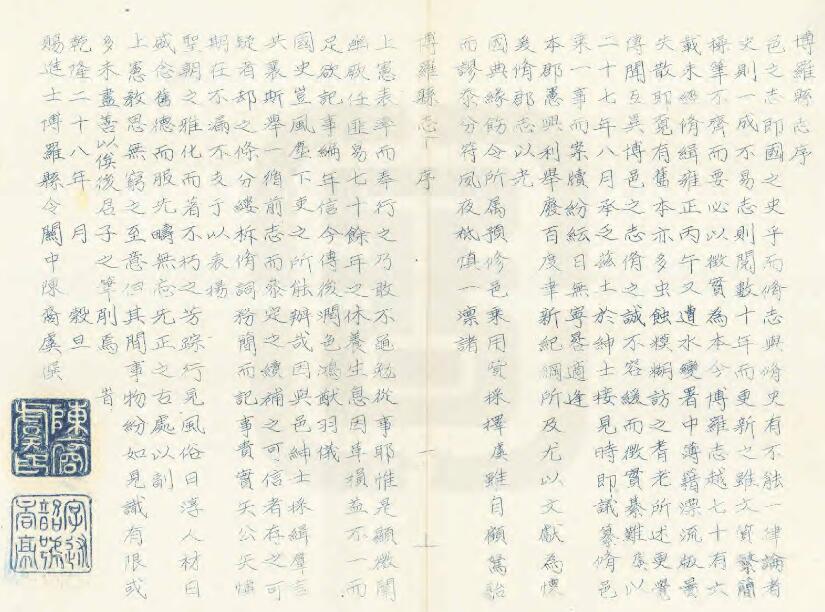 博羅縣志序
邑之志即國之史乎而脩志與脩史有不能一律論者
史則一成不易志則閱數十年而更新之雖文質繁簡
操筆不齊而要必以徵實為本今博羅志越七十有六
載未經脩緝雍正丙午又遭水變署中薄籍漂流版曇
失散耶覓有舊本亦多虫蝕糢糊訪之耆老所述更覺
傳聞互異博邑之志脩之誠不容緩而徵實綦難虞以
二十七年八月承乏茲土於紳士接見時即議纂脩邑
乘一事而案牘紛紜日無寧晷適逢
本郡憲興利舉廢百度聿新紀綱所及尤以文獻為懷
爰脩郡志以光
國典緣飭令所屬預修邑乘用資採擇虞雖自顧駑駘
而謬忝分符風夜祗慎一凜諸
博羅縣志 序 一
上憲表率而奉行之乃敢不黽勉從事耶惟是顧茲闡
幽敢任匪易七十餘年之休養生息因革損益不一而
足欲記事編年信今傳後潤色鴻猷羽儀
國史豈風塵下吏之所能辦哉因與邑紳士採緝羣言
共襄斯舉一循前志而參定之續補之可信者存之可
疑者却之條分縷柝脩詞務簡而記事貴實矢公矢慎
期在不漏不支于以表揚
聖朝之雅化而著不朽之芳踪行見風俗日淳人材日
盛念舊德而服先疇無忘先正之古處以副
上憲教思無窮之至意但其間事物紛如見識有限或
多未盡善以俟後君子之筆削焉 旹
乾隆二十八年 月 穀旦
賜進士博羅縣令關中陳裔虞譔
陳裔虞印